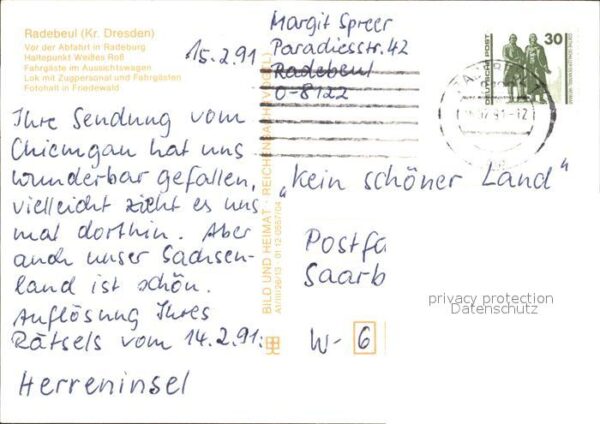 Radebeul (Kr. Dresden)
Vor der Abfahrt in Radeburg
Haltepunkt Weißes Roß
Fahrgäste im Aussichtswagen
Lok mit Zugpersonal und Fahrgästen
Fotohalt in Friedewald
15.2.91
Margit Spreer
Paradiesstr. 42
Radebeul
O-8122
DEUTSCHE POST
30
Ihre Sendung vom
Chiemgau hat uns
wunderbar gefallen,
vielleicht zieht es uns
mal dorthin. Aber
auch unser Sachsen-
land ist schön.
Auflösung Ihres
Rätsels vom 14.2.91:
Herreninsel
BILD UND HEIMAT · REICHENBACH (VOGTL)
A1/III/26/13 01 12 0557/04
„Kein schöner Land"
Postfa
Saarb
W- 6
privacy protection
Datenschutz